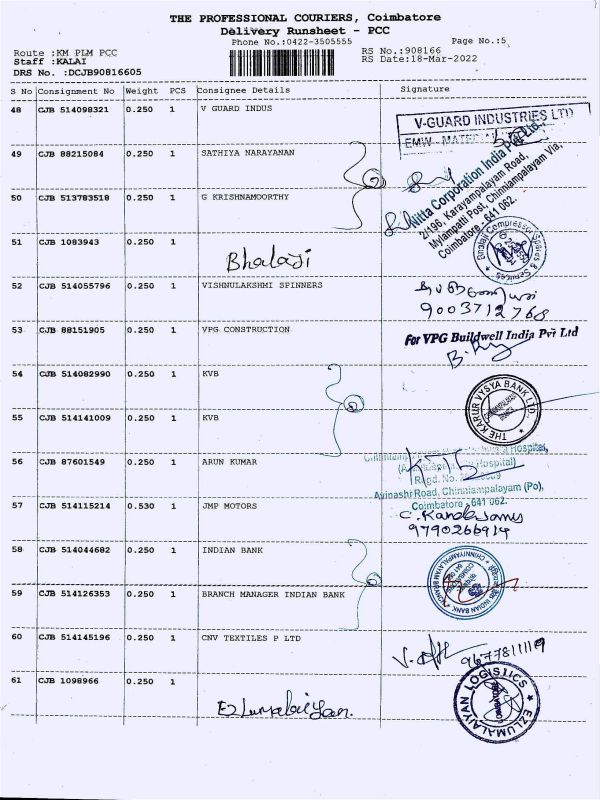 THE PROFESSIONAL COURIERS, Coimbatore
Delivery Runsheet - PCC
Phone No.:0422-3505555
Page No.:5
Route :KM PLM PCC
RS No.:908166
Staff :KALAI
RS Date:18-Mar-2022
DRS No. :DCJB90816605
S No Consignment No Weight PCS Consignee Details Signature
48 CJB 514098321 0.250 1 V GUARD INDUS
V-GUARD INDUSTRIES LTD
EMW - MATERIAL
49 CJB 88215084 0.250 1 SATHIYA NARAYANAN
50 CJB 513783518 0.250 1 G KRISHNAMOORTHY
Nitta Corporation India Pvt Ltd.
2/196, Karayampalayam Road,
Mylampatti Post, Chinniampalayam Via,
Coimbatore - 641 062.
51 CJB 1083943 0.250 1
Bhalaji
52 CJB 514055796 0.250 1 VISHNULAKSHMI SPINNERS
9003712768
53 CJB 88151905 0.250 1 VPG CONSTRUCTION
For VPG Buildwell India Pvt Ltd
54 CJB 514082990 0.250 1 KVB
THE KARUR VYSYA BANK LTD.
55 CJB 514141009 0.250 1 KVB
56 CJB 87601549 0.250 1 ARUN KUMAR
Hospital,
Hospital)
Regd. No.
Avinashi Road, Chinniampalayam (Po),
Coimbatore - 641 062.
57 CJB 514115214 0.530 1 JMP MOTORS
C. Kandasamy
9790266914
58 CJB 514044682 0.250 1 INDIAN BANK
INDIAN BANK
59 CJB 514126353 0.250 1 BRANCH MANAGER INDIAN BANK
60 CJB 514145196 0.250 1 CNV TEXTILES P LTD
9677811119
61 CJB 1098966 0.250 1
Ezlumalaiyan.
EZLUMALAIYAN LOGISTICS
COIMBATORE